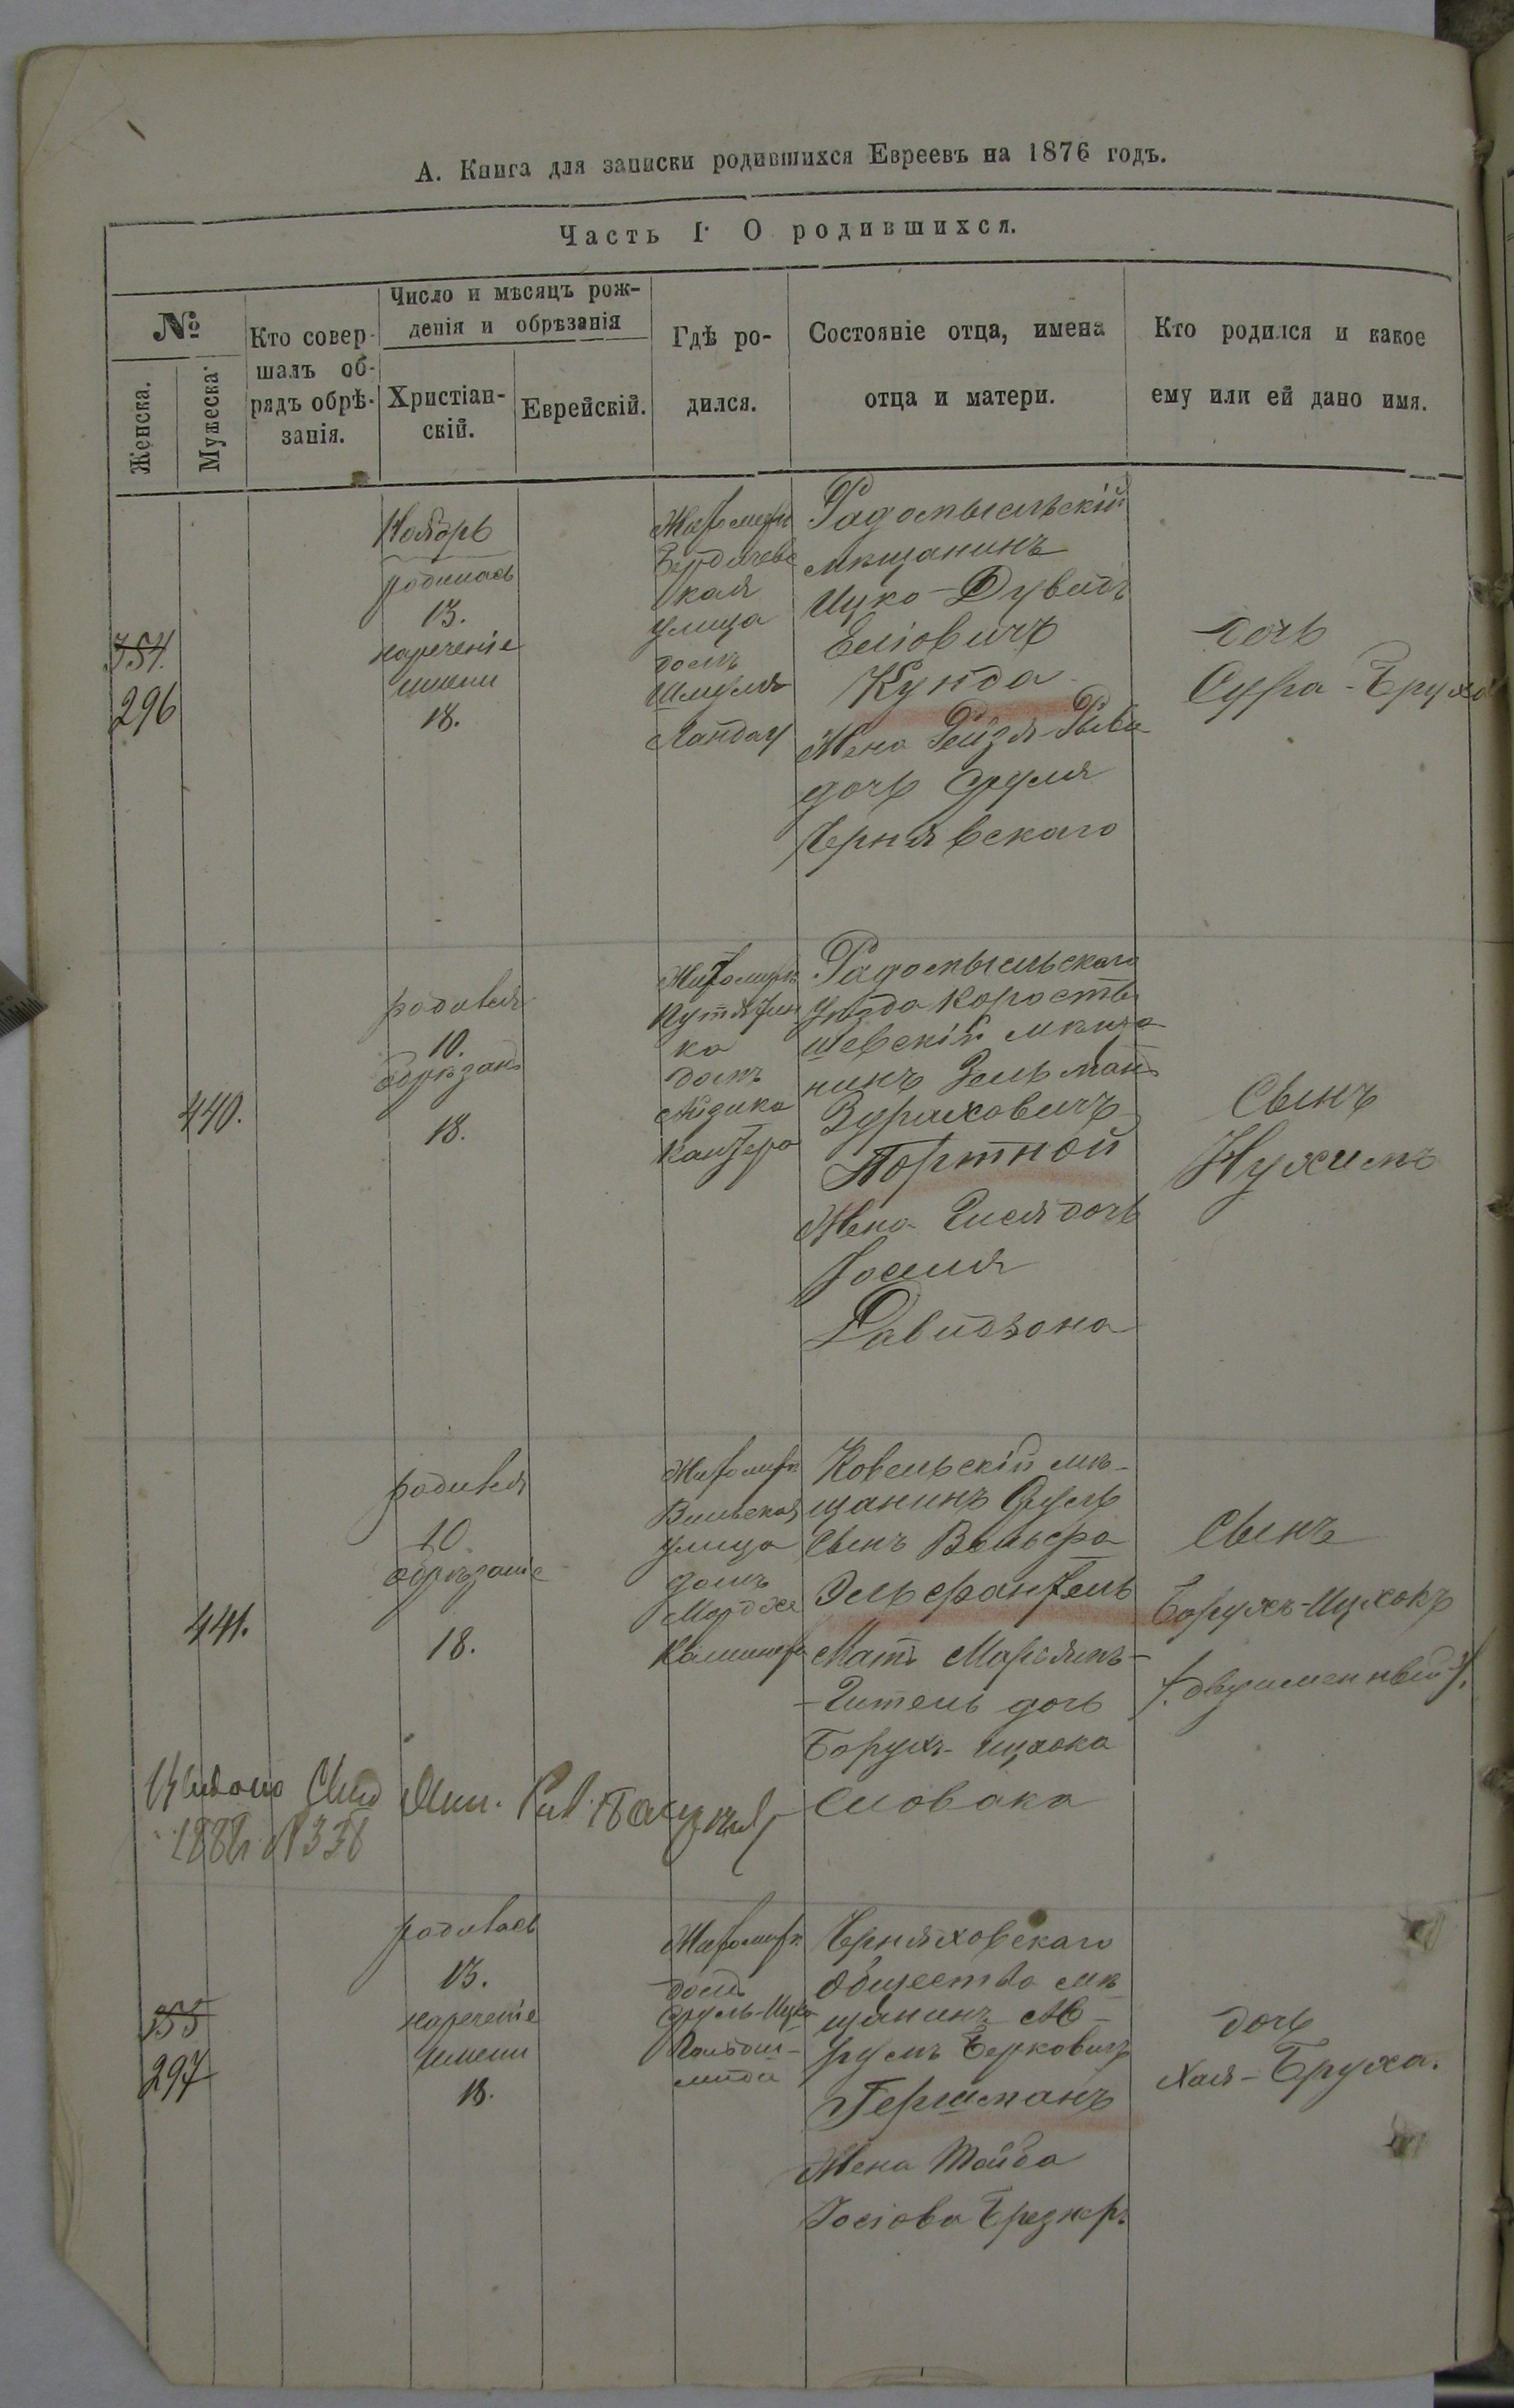 А. Книга для записки родившихся Евреевъ на 1876 годъ.
Часть I. О родившихся.
№
Женска.
Мужеска.
Кто совер-
шалъ об-
рядъ обрѣ-
занія.
Число и мѣсяцъ рож-
денія и обрѣзанія
Христіан-
скій.
Еврейскій.
Гдѣ ро-
дился.
Состояніе отца, имена
отца и матери.
Кто родился и какое
ему или ей дано имя.
354.
296
Ноябрь
родилась
13.
нареченіе
имени
18.
Житомиръ
Бердичевс
кая
улица
домъ
Шмуля
Ландау
Радомысльскій
мѣщанинъ
Ицко-Дувидъ
Еліовичъ
Кунда
Жена Рейзя-Рывка
дочь Сруля
Чернявскаго
дочь
Сура-Бруха
440.
родился
10.
обрѣзаніе
18.
Житомиръ
Путятин
ка
домъ
Айзика
Кантера
Радомысльскаго
уѣзда Коросты
шевскій мѣща
нинъ Зельманъ
Зуриховичъ
Портной
Жена Гися дочь
Іоселя
Давидзона
Сынъ
Нухимъ
441.
родился
10
обрѣзаніе
18.
Житомиръ
Вильская
улица
домъ
Мордхе
Ковельскій мѣ-
щанинъ Сруль
Сынъ Вольфа
Эльфантель
Мать Марьямъ-
-Гитель дочь
Борухъ-Ицхока
Словака
Сынъ
Борухъ-Ицхокъ
/.двуименный/.
355
297
родилась
13.
нареченіе
имени
18.
Житомиръ
домъ
Сруль-Ицка
Черняховскаго
Общества мѣ
щанинъ Аб-
румъ Берковичъ
Гершманъ
Жена Тойба
Іосіова Брезнеръ
дочь
Хая-Бруха.